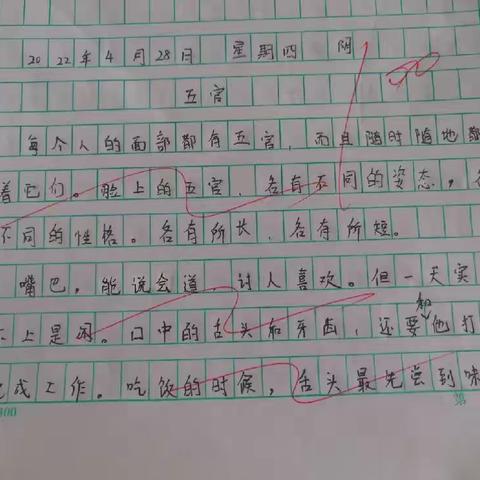 2022年4月28日 星期四 阴
五官
每个人的面部都有五官,而且随时随地都
着它们。脸上的五官,各有不同的姿态,各
不同的性格。各有所长,各有所短。
嘴巴,能说会道,讨人喜欢。但一天实
上是闲。口中的舌头和牙齿,还要和他打
成工作。吃饭的时候,舌头最先尝到味